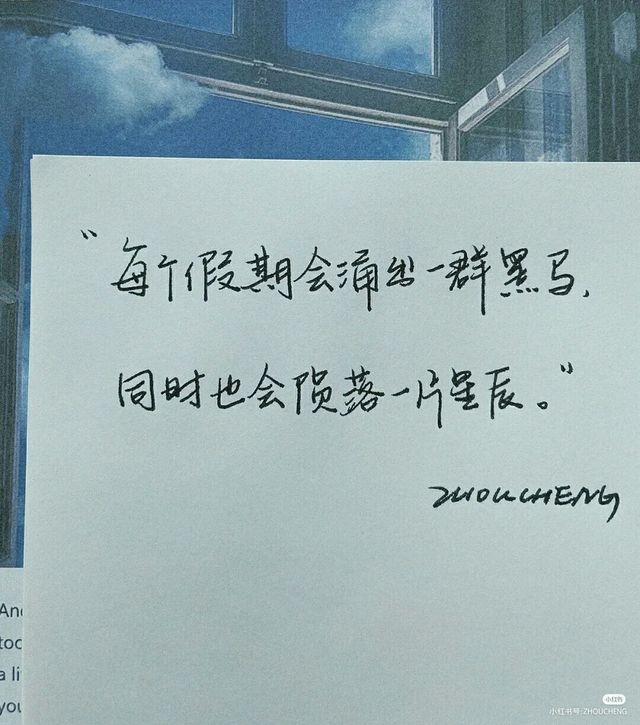 “每个假期会涌出一群黑马，
同时也会陨落一片星辰。”
ZHOUCHENG
And
too
a li
you
小红书
小红书号:ZHOUCHENG